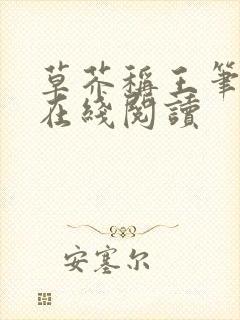 草芥稱王筆
在綫閱讀
安塞尔